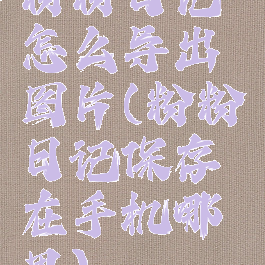 粉粉日记
怎么导出
图片(粉粉
日记保存
在手机哪
里)